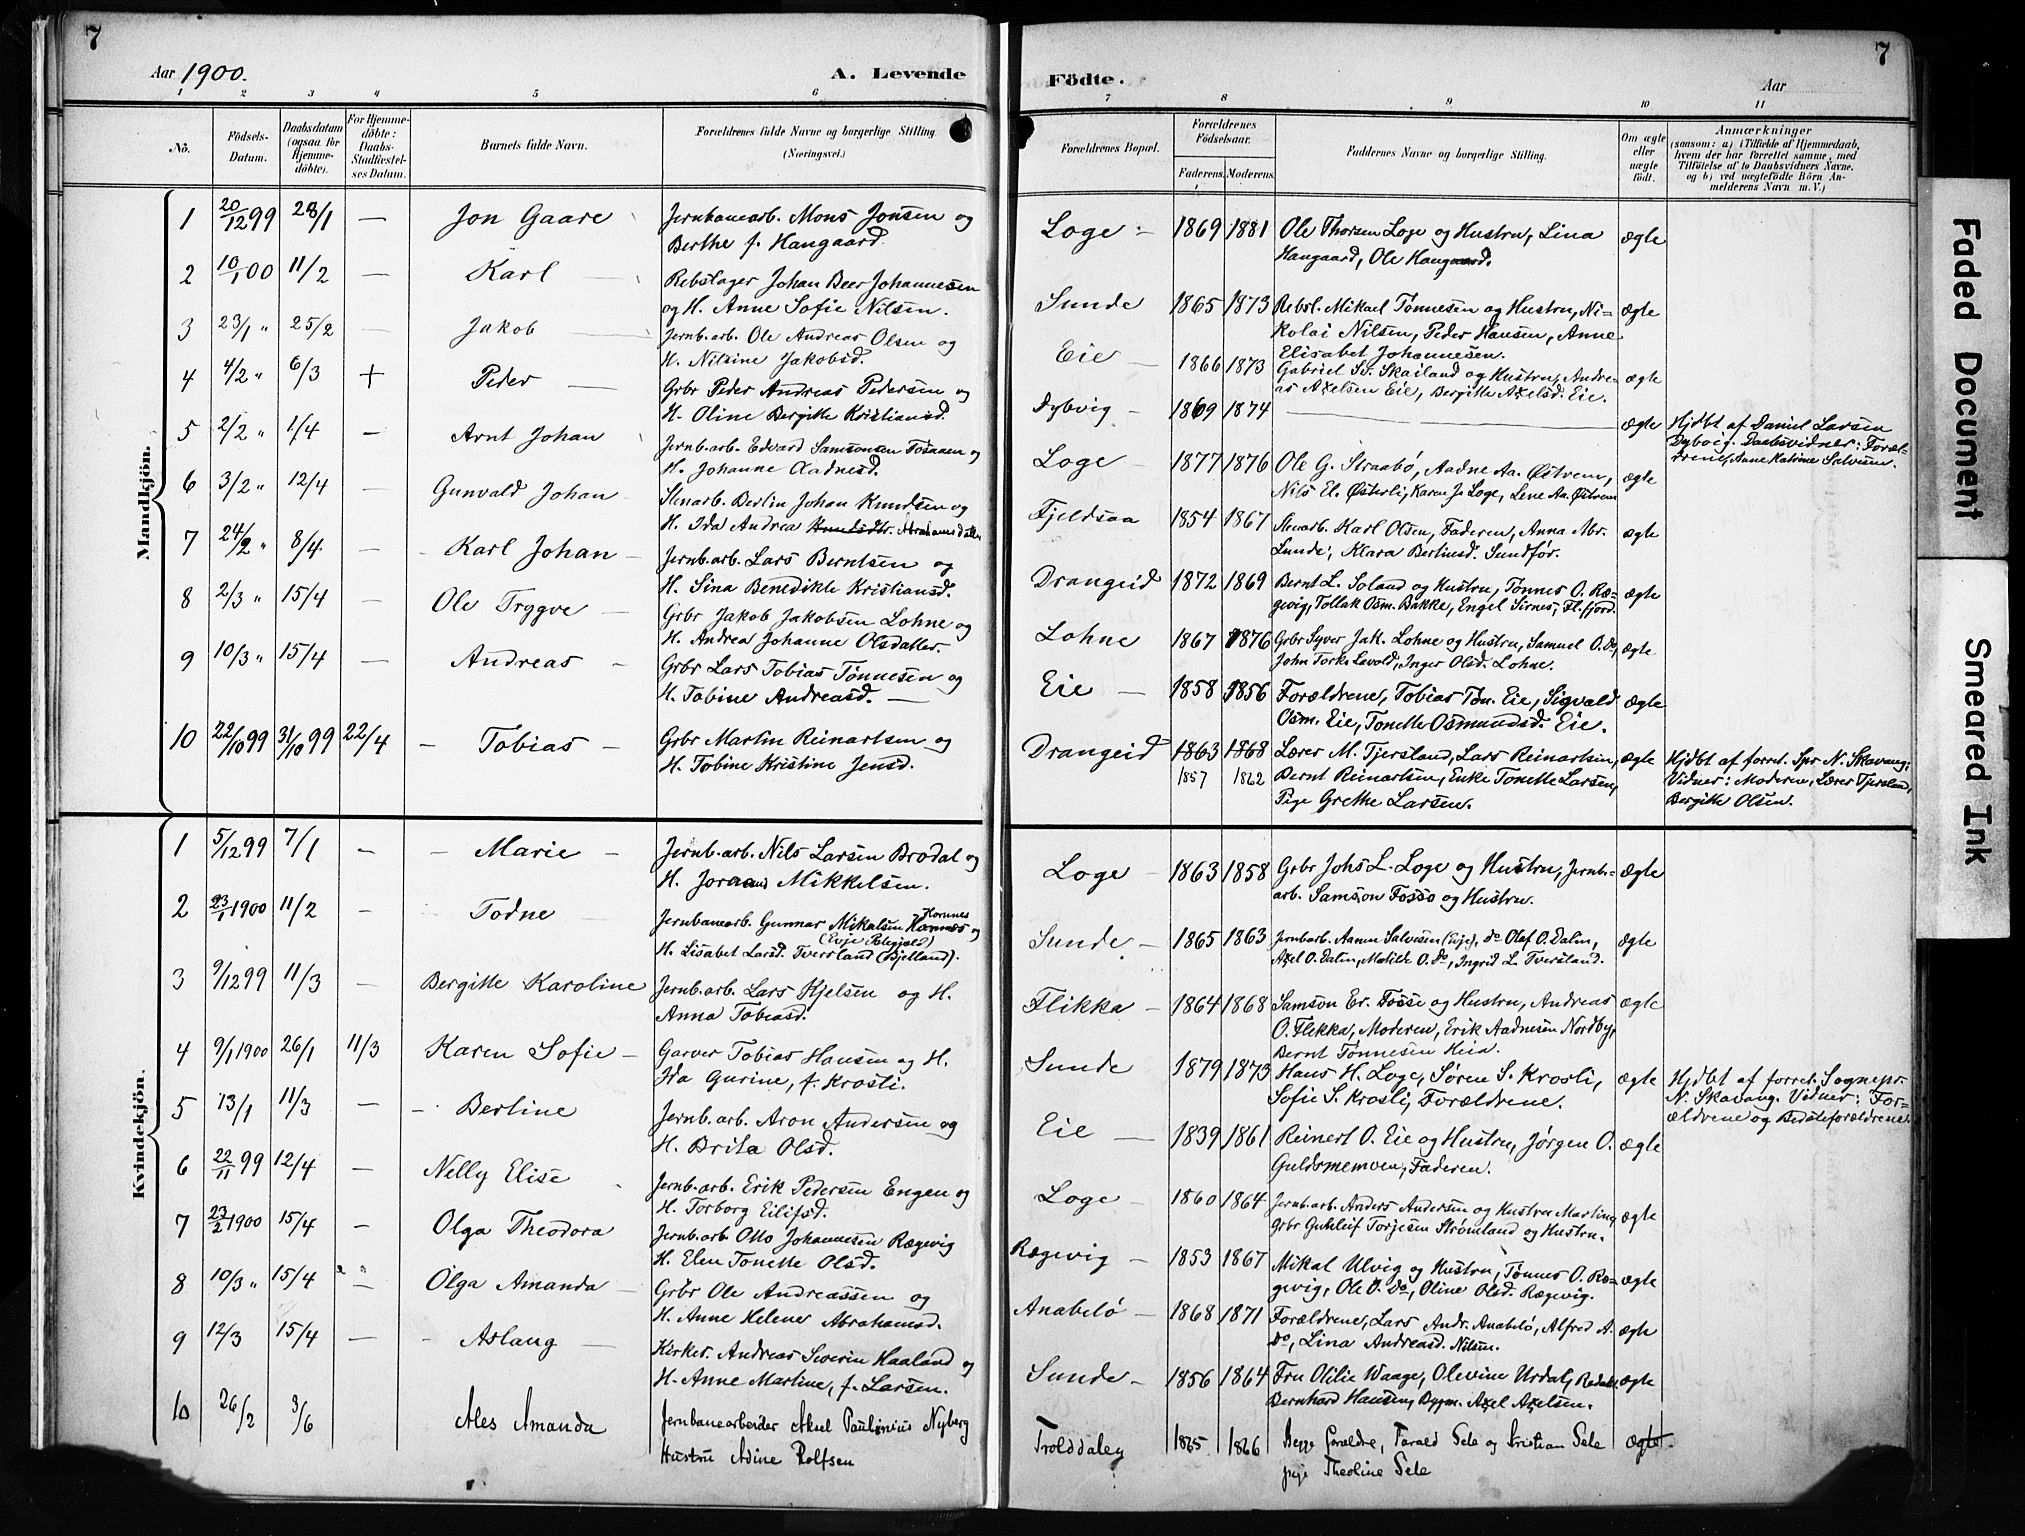 7
Aar 1900.
A. Levende
1 2 3 4 5 6
No.
Födsels-Datum.
Daabsdatum (ogsaa for Hjemme-döbte).
For Hjemme-döbte: Daabs-Stadfæstel-ses Datum.
Barnets fulde Navn.
Forældrenes fulde Navne og borgerlige Stilling
(Næringsvei.)
Mandkjön.
1 20/12 99 28/1 — Jon Gaare Jernbanearb. Mons Jonsen og
Berthe f. Haugaard.
2 10/1 00 11/2 — Karl — Rebslager Johan Beer Johannesen
og H. Anne Sofie Nilsen.
3 23/1 " 25/2 — Jakob — Jernb.arb. Ole Andreas Olsen og
H. Nilsine Jakobsd.
4 4/2 " 6/3 + Peder — Grbr Peder Andreas Pedersen og
H. Oline Bergitte Kristiansd.
5 2/2 " 1/4 — Arnt Johan Jernb.arb. Edvard Samsonsen og
H. Johanne Aadnesd.
6 3/2 " 12/4 — Gunvald Johan — Stenarb. Bertin Johan Knudsen og
H. Ida Andrea Knudsdtr. Abrahamsdatter
7 24/2 " 8/4 — Karl Johan — Jernb.arb. Lars Berntsen og
H. Sina Benedikte Kristiansd.
8 2/3 " 15/4 — Ole Tryggve — Grbr Jakob Jakobsen Lohne og
H. Andrea Johanne Olsdatter.
9 10/3 " 15/4 — Andreas — Grbr Lars Tobias Tønnesen og
H. Tobine Andreasd. —
10 22/10 99 31/10 99 22/4 — Tobias — Grbr Martin Reinartsen og
H. Tobine Kristine Jensd.
Kvindekjön.
1 5/12 99 7/1 — Marie — Jernb.arb. Nils Larsen Brodal og
H. Joraand Mikkelsen.
2 23/1 1900 11/2 — Todne — Jernbanearb. Gunnar Mikalsen Hornnes og
Hornnes
H. Lisabet Larsd. Tversland (Bjelland).
3 9/12 99 11/3 — Bergitte Karoline Jernb.arb. Lars Kjelsen og H.
Anna Tobiasd.
4 9/1 1900 26/1 11/3 Karen Sofie — Garver Tobias Hansen og H.
Ida Gurine, f. Krosli.
5 13/1 11/3 — Bertine Jernb.arb. Aron Andersen og
H. Brita Olsd.
6 22/11 99 12/4 — Nelly Elise Jernb.arb. Erik Pedersen Engen og
H. Torborg Eilifsd.
7 23/2 1900 15/4 — Olga Theodora Jernb.arb. Otto Johannesen Rægevig
H. Elen Tonette Olsd.
8 10/3 " 15/4 " " — Olga Amanda — Grbr Ole Andreassen og
H. Anne Helene Abrahamsd.
9 12/3 15/4 — Aslaug — Kirkes. Andreas Severin Haaland og
H. Anne Martine, f. Larsen.
10 26/2 3/6 Ales Amanda Jernbanearbeider Aksel Paulinius Nyberg
Hustru Adine Rolfsen
7
Födte.
Aar
7 8 9 10 11
Forældrenes Bopæl.
Forældrenes Födselsaar.
Faderens. Moderens.
Faddernes Navne og borgerlige Stilling.
Om ægte eller uægte födt.
Anmærkninger
(saasom: a) i Tilfælde af Hjemmedaab, hvem der har forrettet samme, med Tilföielse af to Daabsvidners Navne. og b) ved uægtefödte Börn Anmelderens Navn m. V.)
Loge — 1869 1881 Ole Thorsen Loge og Hustru, Lina ægte
Haugaard, Ole Haugaard.
Sunde 1865 1873 Rebsl. Mikael Tønnesen og Hustru, Ni- ægte
kolai Nilsen, Peder Hansen, Anne
Elisabet Johannesen.
Eie — 1866 1873 Gabriel Skailand og Hustru, Andre- ægte
as Axelsen Eie, Bergitte Axelsd. Eie.
Dybvig — 1869 1874 — ægte Hjdbt af Daniel Larsen
Dybvig. Daabsvidner: Foræl-
drene, Anne Katrine Salvesen.
Loge 1877 1876 Ole G. Straabø, Aadne Aa. Østrem, ægte
Nils El. Østerli, Karen J. Loge, Lene Aa. Østrem
Fjeldsaa 1854 1867 Stenarb. Karl Olsen, Faderen, Anna Abr. ægte
Lunde, Klara Bertinsd. Sundfør.
Drangeid 1872 1869 Bernt L. Soland og Hustru, Tønnes O. Ræ- ægte
gevig, Tollak Osm. Bakke, Engel Sirnes, Fl.fjord.
Lohne 1867 1876 Grbr Syver Jak. Lohne og Hustru, Samuel O. do, ægte
John Torkels. Lavold, Inger Olsd. Lohne.
Eie — 1858 1856 Forældrene, Tobias Tøn. Eie, Sigvald ægte
Osm. Eie, Tonette Osmundsd. Eie.
Drangeid 1863 1868 Lærer M. Tjersland, Lars Reinartsen, ægte Hjdbt af forret. Spr N. Skavang:
1857 1862 Bernt Reinartsen, Enke Tonette Larsen, Vidner: Moderen, Lærer Tjersland,
Pige Grethe Larsen. Bergitte Olsen.
Loge — 1863 1858 Grbr Johs L. Loge og Hustru, Jernb.- ægte
arb. Samson Fosso og Hustru.
Sunde — 1865 1863 Jernbarb. Aanen Salvesen (Evje), do Olaf O. Dalen, ægte
Axel O. Dalen, Matilde O. do, Ingrid L. Tversland.
Flikka — 1864 1868 Samson Er. Fosse og Hustru, Andreas ægte
O. Flikka, Moderen, Erik Aadnesen Nordby,
Bernt Tønnesen Heia.
Sunde 1879 1873 Hans H. Loge, Søren S. Krosli, ægte Hjdbt af forret. Sognepr.
Sofie S. Krosli, Forældrene. N. Skavang. Vidner: For-
ældrene og Bedsteforældrene.
Eie — 1839 1861 Reinert O. Eie og Hustru, Jørgen O. ægte
Guldsmedmoen, Faderen.
Loge — 1860 1864 Jernb.arb. Anders Andersen og Hustru Martine, ægte
Grbr Gunleif Torjesen Strømland og Hustru.
Rægevig — 1853 1867 Mikal Ulvig og Hustru, Tønnes O. Ræ- ægte
gevig, Ole O. do, Oline Olsd. Rægevig.
Anabelø — 1868 1871 Forældrene, Lars Andr. Anabelø, Alfred A. ægte
do, Lina Andreasd. Nilsen.
Sunde — 1856 1864 Fru Otilie Waage, Olevine Urdal, Redakt. ægte
Bernhard Hansen, Bygm. Axel Axelsen.
Trolddalen 1865 1866 Begge Forældre, Tarald Sele og Kristian Sele ægte.
pige Theoline Sele
Faded Document
Smeared Ink